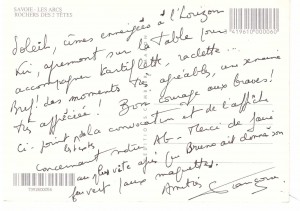 SAVOIE - LES ARCS
ROCHERS DES 2 TÊTES
Soleil, cimes enneigées à l'horizon
Kir, apremont sur la table pour
accompagner tartiflette, raclette...
Bref! des moments très agréables, une semaine
très appréciée! Bon courage aux braves!
Ci-joint la convocation et de l'affiche
concernant notre AG - Merci de faire
au plus vite après que Bruno ait donné son
feu vert (aux maquettes.
Amitiés